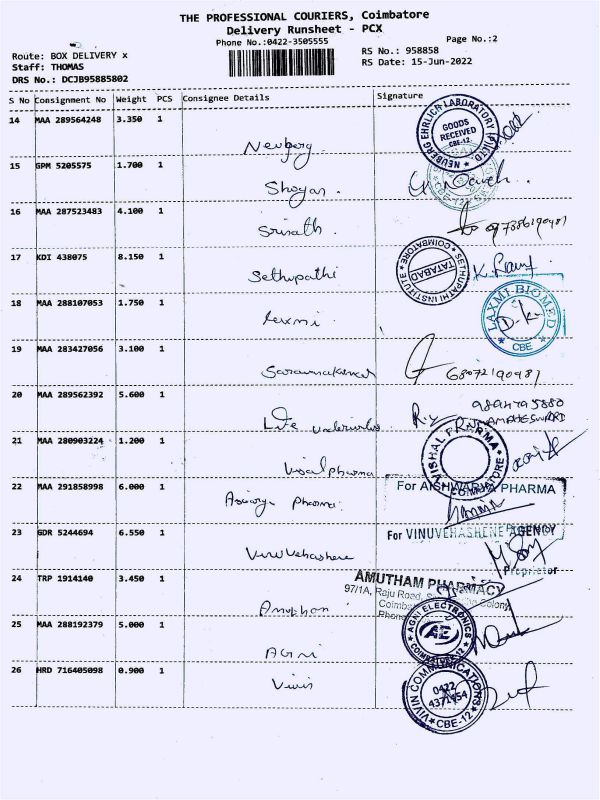 THE PROFESSIONAL COURIERS, Coimbatore
Delivery Runsheet - PCX
Phone No.:0422-3505555
Page No.:2
Route: BOX DELIVERY x
Staff: THOMAS
DRS No.: DCJB95885802
RS No.: 958858
RS Date: 15-Jun-2022
S No Consignment No Weight PCS Consignee Details Signature
14 MAA 289564248 3.350 1
NEUBERG EHRLICH LABORATORY (P) LTD
GOODS RECEIVED
CBE-12
Neuberg
15 GPM 5205575 1.700 1
16 MAA 287523483 4.100 1
Srinath
17 KDI 438075 8.150 1
Sethupathi
SETHUPATHI INSTITUTE
TATABAD
COIMBATORE
18 MAA 288107053 1.750 1
laxmi
LAXMI BIOMED
CBE
19 MAA 283427056 3.100 1
Saravanakumar
68072190481
20 MAA 289562392 5.600 1
Life
21 MAA 280903224 1.200 1
Visal pharma
VISHAL PHARMA
COIMBATORE
22 MAA 291858998 6.000 1
pharma
For AISHWARYA PHARMA
23 GDR 5244694 6.550 1
For VINUVEHASHENE AGENCY
Proprietor
24 TRP 1914140 3.450 1
AMUTHAM PHARMACY
97/1A, Raju Road,
Colony
Phone
25 MAA 288192379 5.000 1
AGNI
AGNI ELECTRONICS
AE
COIMBATORE-12
26 HRD 716405098 0.900 1
Vivin
VIVIN COMMUNICATIONS
0422
CBE-12